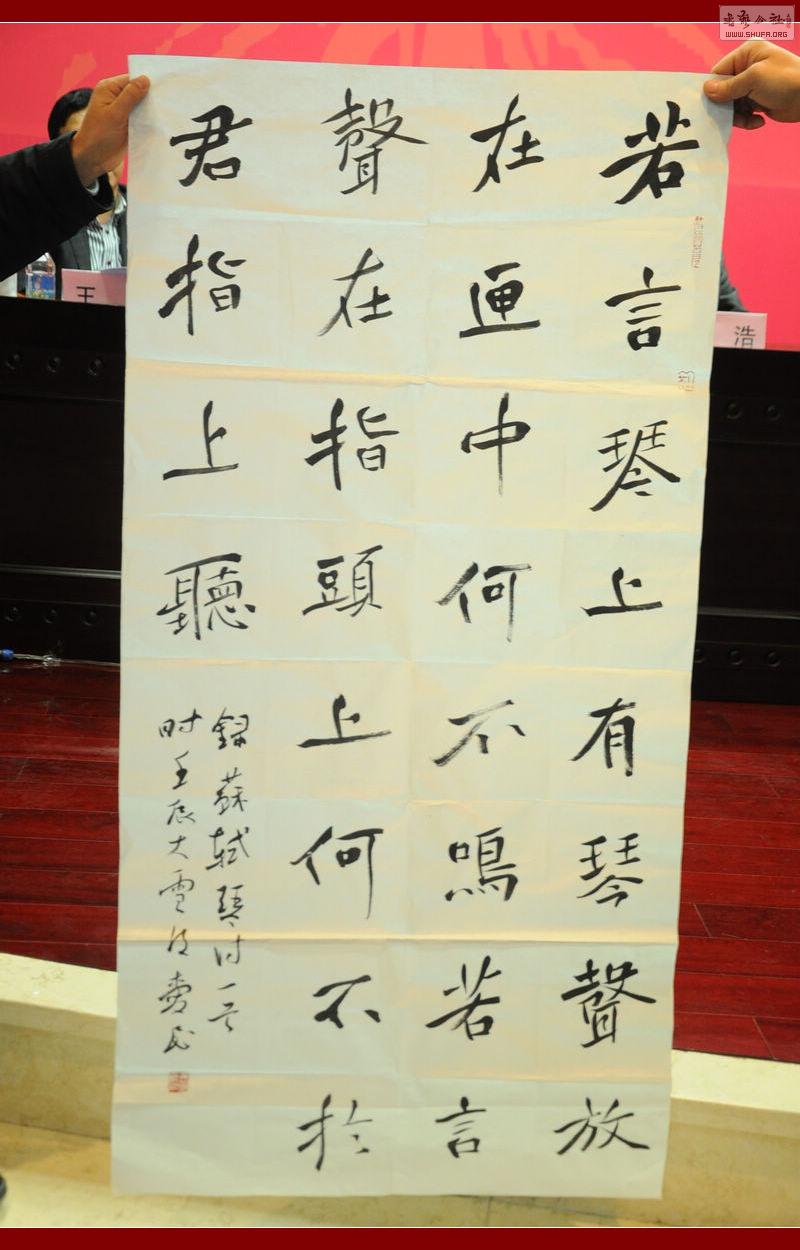 若言琴上有琴聲放
在匣中何不鳴若言
聲在指頭上何不於
君指上聽
錄蘇軾琴诗一首
时壬辰大雪
王
浩
WWW.SHUFA.ORG